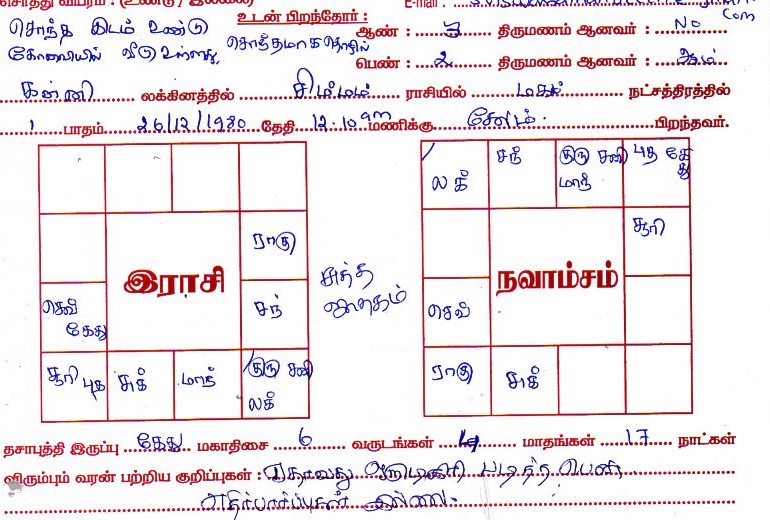 சொத்து விபரம் : (உண்டு / இல்லை)
E-mail :
உடன் பிறந்தோர் :
com
சொந்த இடம் உண்டு
ஆண் : 3 திருமணம் ஆனவர் : No
கோவையில் வீடு உள்ளது, சொந்தமாக தொழில்
பெண் : 2 திருமணம் ஆனவர் : ஆம்
கன்னி லக்கினத்தில் சிம்மம் ராசியில் மகம் நட்சத்திரத்தில்
1 பாதம் 26/12/1980 தேதி 12.10 am மணிக்கு சேலம். பிறந்தவர்.
ராகு
இராசி
செவ் கேது
சந்
சூரி புத
சுக்
மாந்
குரு சனி லக்
சுத்த ஜாதகம்
லக்
சந்
குரு சனி மாந்
புத கேது
சூரி
நவாம்சம்
செவ்
ராகு
சுக்
தசாபுத்தி இருப்பு கேது மகாதிசை 6 வருடங்கள் 4 மாதங்கள் 17 நாட்கள்
விரும்பும் வரன் பற்றிய குறிப்புகள் : ஏதாவது டிகிரி படித்த பெண்
எதிர்பார்ப்புகள் இல்லை.